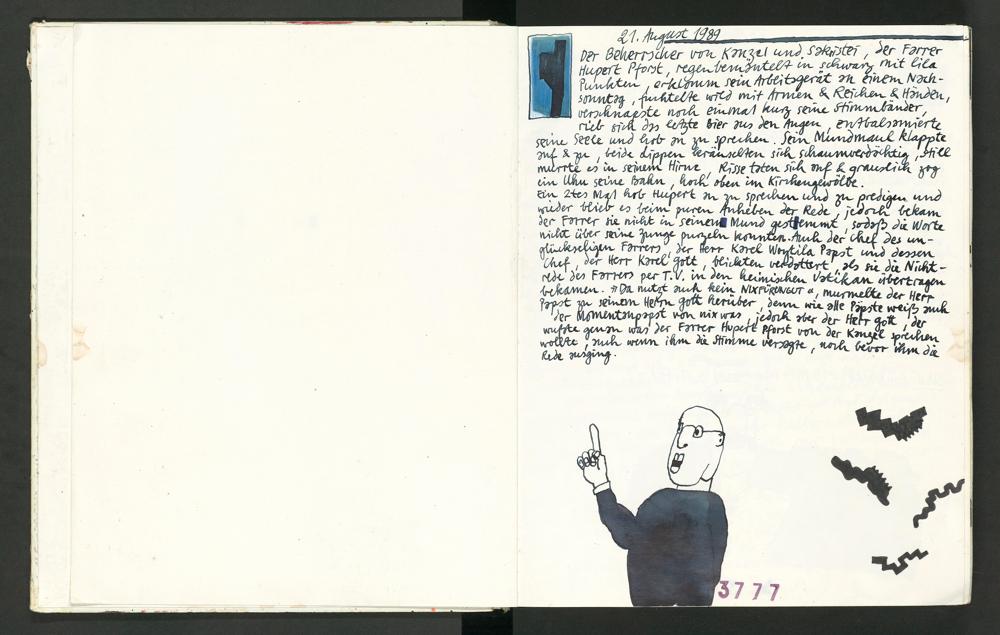 21. August 1989
Der Beherrscher von Kanzel und Sakristei, der Farrer
Hupert Pforst, regenbemäntelt in schwarz mit lila
Punkten, erklomm sein Arbeitsgerät an einem Nach-
sonntag, fuchtelte wild mit Armen & Reichen & Händen,
verschnapste noch einmal kurz seine Stimmbänder
rieb sich das letzte Bier aus den Augen, entbalsamierte
seine Seele und hob an zu sprechen. Sein Mundmaul klappte
auf & zu, beide Lippen kräuselten sich schaumverdächtig, still
murrte es in seinem Hirne, Risse taten sich auf & grauslich zog
ein Uhu seine Bahn, hoch oben im Kirchengewölbe.
Ein 2tes Mal hob Hupert an zu sprechen und zu predigen und
wieder blieb es beim puren Anheben der Rede, jedoch bekam
der Farrer sie nicht in seinem Mund gestemmt, sodaß die Worte
nicht über seine Zunge purzeln konnten. Auch der Chef des un-
glückseligen Farrers, der Herr Karel Woytila Papst und dessen
Chef, der Herr Karel Gott, blickten verdattert, als sie die Nicht-
rede des Farrers per T.V. in den heimischen Vatikan übertragen
bekamen. »Da nutzt auch kein NIXFÜRUNGUT«, murmelte der Herr
Papst zu seinem Herrn Gott herüber, denn wie alle Päpste weiß auch
der Momentanpapst von nix was, jedoch aber der Herr Gott, der
wußte genau was der Farrer Hupert Pforst von der Kanzel sprechen
wollte, auch wenn ihm die Stimme versagte, noch bevor ihm die
Rede ausging.
3777